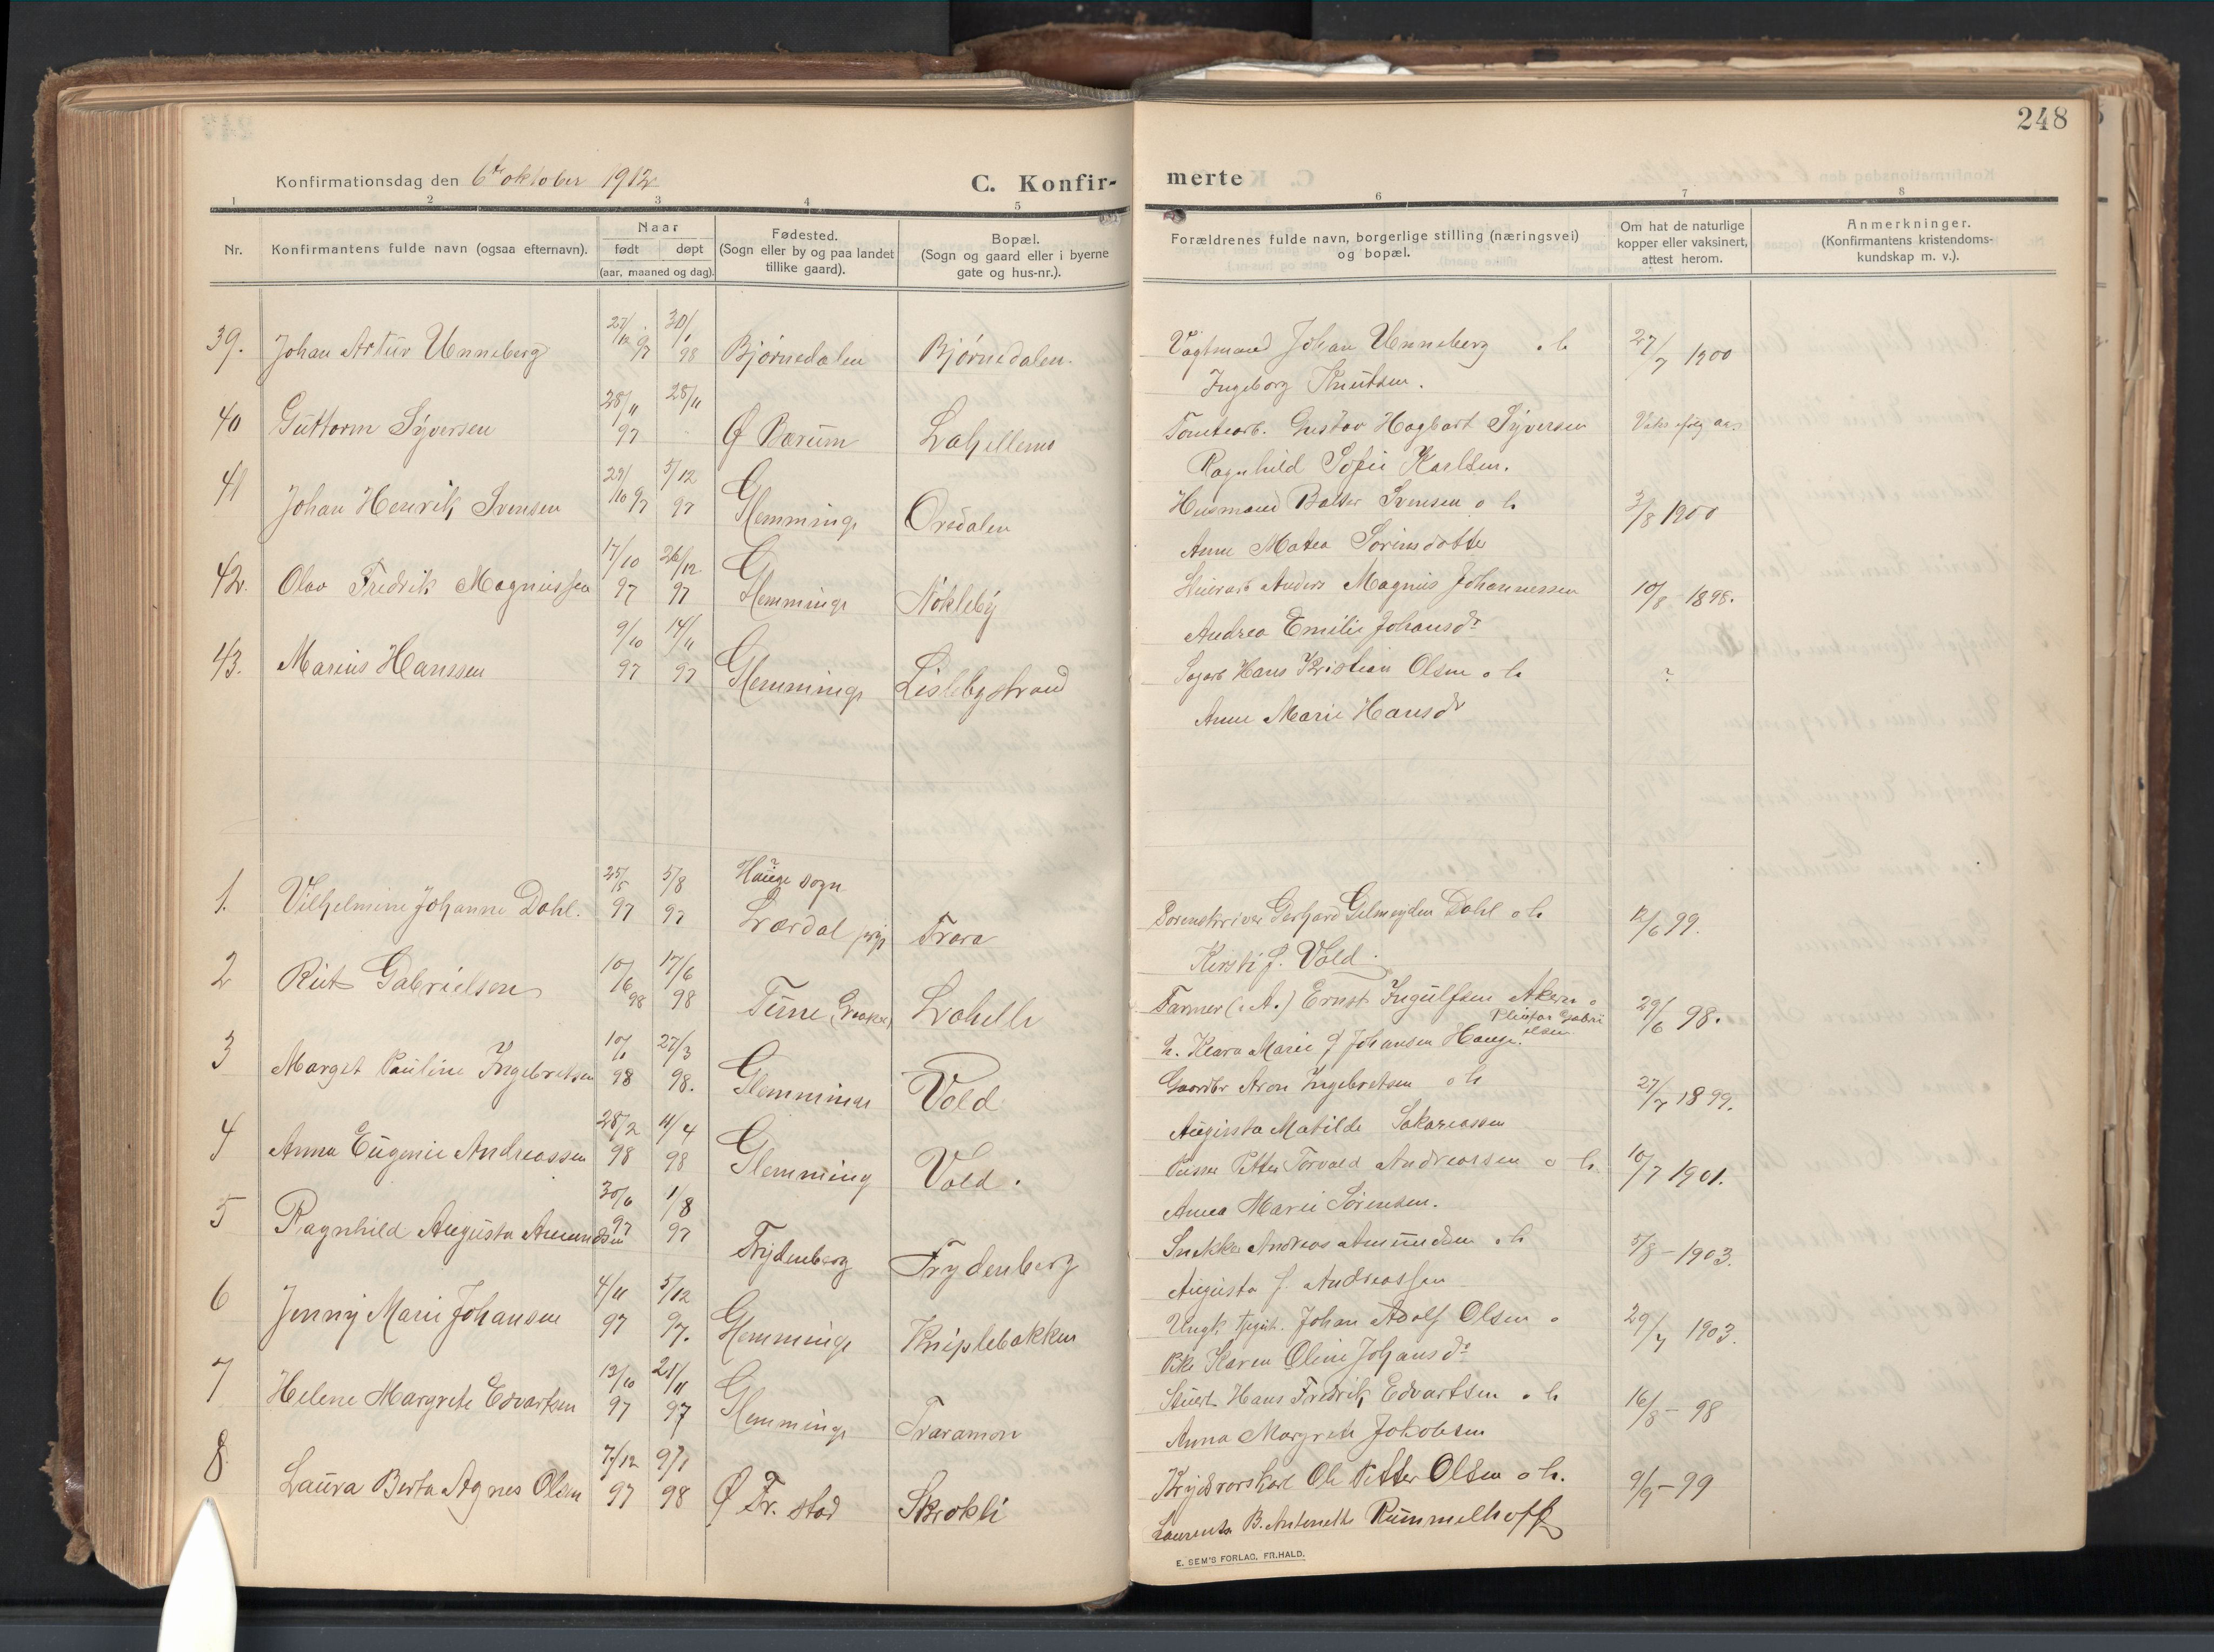 248
Konfirmationsdag den 6te oktober 1912
C. Konfir-
merte
1 2 3 4 5 6 7 8
Nr.
Konfirmantens fulde navn (ogsaa efternavn).
Naar
født døpt
(aar, maaned og dag).
Fødested.
(Sogn eller by og paa landet
tillike gaard).
Bopæl.
(Sogn og gaard eller i byerne
gate og hus-nr.).
Forældrenes fulde navn, borgerlige stilling (næringsvei)
og bopæl.
Om hat de naturlige
kopper eller vaksinert,
attest herom.
Anmerkninger.
(Konfirmantens kristendoms-
kundskap m. v.).
39. Johan Artur Unneberg 27/12 97 30/1 98 Bjørnedalen Bjørnedalen. Vagtmand Johan Unneberg o h 27/7 1900
Ingeborg Knutsen.
40 Guttorm Syversen 28/11 97 28/11 Ø Bærum Lahellemo Tomtearb. Gustav Hagbart Syversen
Ragnhild Sofie Karlsen.
41 Johan Henrik Svensen 29/10 97 5/12 97 Glemminge Oredalen Husmand Balser Svensen o h 3/8 1900
Anne Matea Sørensdatter
42. Olav Fredrik Magnussen 17/10 97 26/12 97 Glemminge Nøkleby Anders Magnus Johannessen 10/8 1898.
Andrea Emilie Johansdr
43. Marius Hanssen 9/10 97 14/11 97 Glemminge Lislebystrand Sagarb Hans Kristian Olsen o h ?
Anne Marie Hansdr
1. Vilhelmine Johanne Dahl. 25/5 97 5/8 97 Hauge sogn
Lærdal prgj Trara Sorenskriver Gerhard Gelmeyden Dahl o h 12/6 99.
Kirsti f. Vold.
2 Rut Gabrielsen 10/6 98 17/6 98 Tune (Greaker) Lahelle Farmer (i A.) Ernst Ingulfsen Akerø o 29/6 98.
h. Klara Marie f Johansen Hauge.
3 Margit Pauline Ingebretsen 10/1 98 27/3 98. Glemminge Vold Gaardbr Aron Ingebretsen o h 27/7 1899.
Augusta Matilde Sakareassen
4 Anna Eugenie Andreassen 28/2 98 11/4 98 Glemming Vold. Pusser Petter Torvald Andreassen o h 10/7 1901.
Anna Marie Sørensen.
5 Ragnhild Augusta Amundsen 30/6 97 1/8 97 Frydenberg Frydenberg Snekker Andreas Amundsen o h 5/8 - 1903.
Augusta f. Andreassen
6 Jenny Marie Johansen 4/11 97 5/12 97. Glemminge Kniplebakken Ungk Johan Adolf Olsen o 29/7 1903.
Pike Karen Oline Johansdr
7 Helene Margrete Edvartsen 12/10 97 21/11 97 Glemminge Traramon Stuert Hans Fredrik Edvartsen o h 16/8 - 98
Anna Margrete Jakobsen
8 Laura Berta Agnes Olsen 7/12 97 9/1 98 Ø Fr. stad Skrokli Krydsvorskarl Ole Petter Olsen o h. 9/9 - 99
Laurentse B. Antonette Rummelhoff
E. SEM'S FORLAG, FR.HALD.